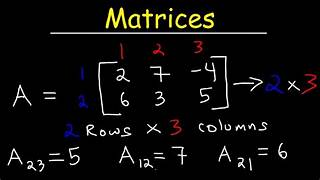 Matrices
1 2 3
1 2 7 -4
A = → 2 x 3
2 6 3 5
2 Rows x 3 columns
A23 = 5 A12 = 7 A21 = 6